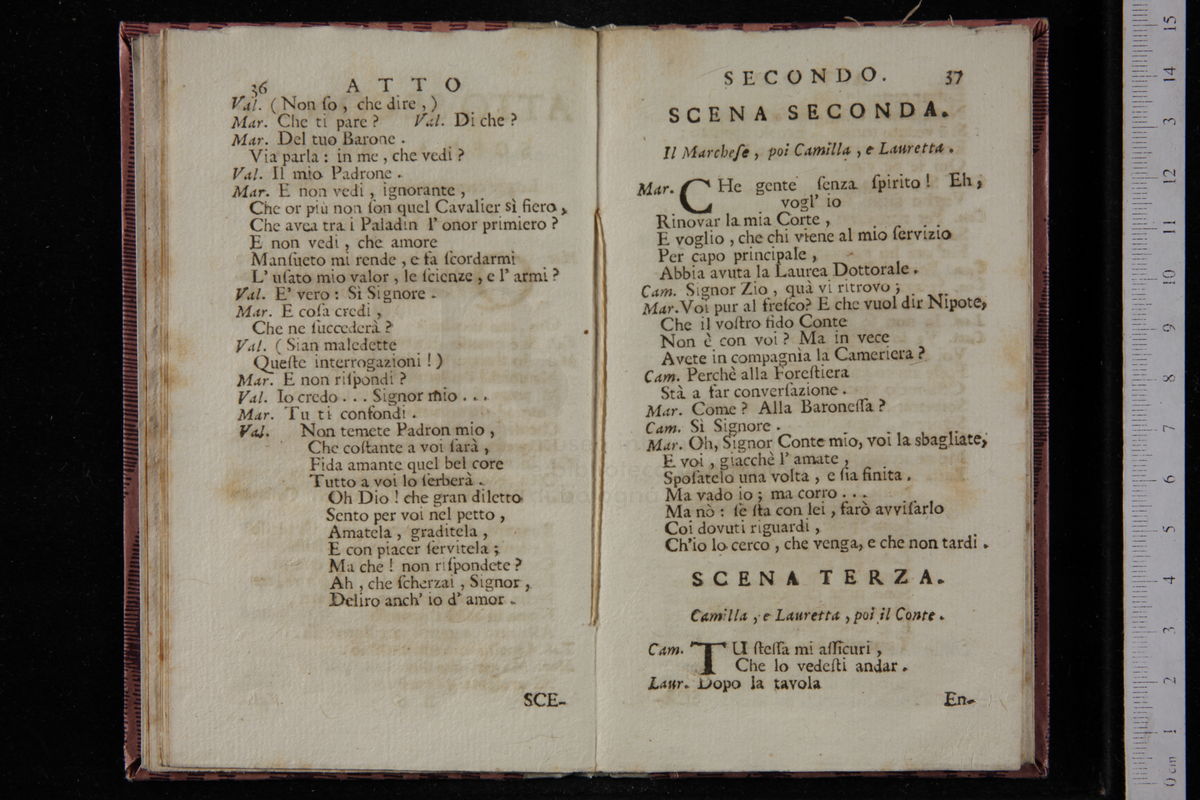 36 ATTO
Val. (Non ſo, che dire,)
Mar. Che ti pare? Val. Di che?
Mar. Del tuo Barone.
Via parla: in me, che vedi?
Val. Il mio Padrone.
Mar. E non vedi, ignorante,
Che or più non ſon quel Cavalier sì fiero,
Che avea tra i Paladin l' onor primiero?
E non vedi, che amore
Manſueto mi rende, e fa ſcordarmi
L' uſato mio valor, le ſcienze, e l' armi?
Val. E' vero: Sì Signore.
Mar. E coſa credi,
Che ne ſuccederà?
Val. (Sian maledette
Queſte interrogazioni!)
Mar. E non riſpondi?
Val. Io credo... Signor mio...
Mar. Tu ti confondi.
Val. Non temete Padron mio,
Che coſtante a voi ſarà,
Fida amante quel bel core
Tutto a voi lo ſerberà.
Oh Dio! che gran diletto
Sento per voi nel petto,
Amatela, graditela,
E con piacer ſervitela;
Ma che! non riſpondete?
Ah, che ſcherzai, Signor,
Deliro anch' io d' amor.
SCE-
SECONDO. 37
SCENA SECONDA.
Il Marcheſe, poi Camilla, e Lauretta.
Mar. CHe gente ſenza ſpirito! Eh,
vogl' io
Rinovar la mia Corte,
E voglio, che chi viene al mio ſervizio
Per capo principale,
Abbia avuta la Laurea Dottorale.
Cam. Signor Zio, quà vi ritrovo;
Mar. Voi pur al freſco? E che vuol dir Nipote,
Che il voſtro fido Conte
Non è con voi? Ma in vece
Avete in compagnia la Cameriera?
Cam. Perchè alla Foreſtiera
Stà a far converſazione.
Mar. Come? Alla Baroneſſa?
Cam. Sì Signore.
Mar. Oh, Signor Conte mio, voi la sbagliate,
E voi, giacchè l' amate,
Spoſatelo una volta, e ſia finita.
Ma vado io; ma corro...
Ma nò: ſe ſta con lei, farò avviſarlo
Coi dovuti riguardi,
Ch'io lo cerco, che venga, e che non tardi.
SCENA TERZA.
Camilla, e Lauretta, poi il Conte.
Cam. TU ſteſſa mi aſſicuri,
Che lo vedeſti andar.
Laur. Dopo la tavola
En-
0 cm 1 2 3 4 5 6 7 8 9 10 11 12 13 14 15